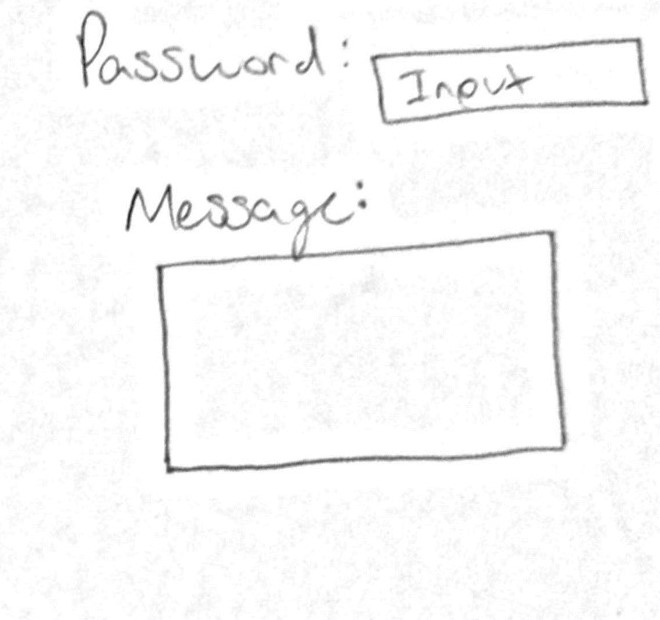 Password: Input
Message: